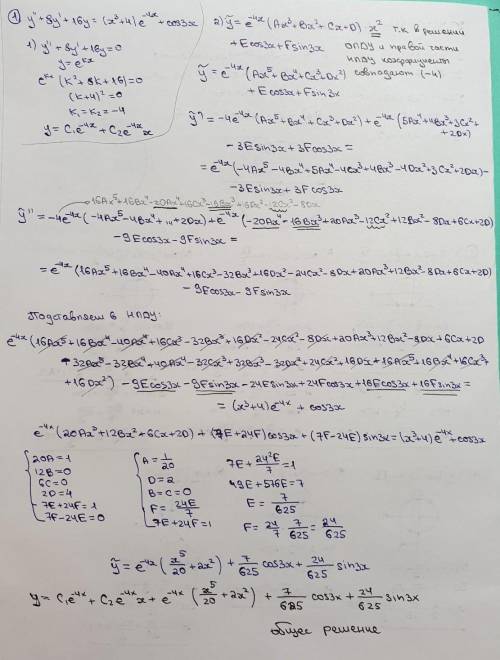 ① y'' + 8y' + 16y = (x³+4)e^-4x + cos3x
1) y'' + 8y' + 16y = 0
y = e^kx
e^kx (k² + 8k + 16) = 0
(k+4)² = 0
k₁ = k₂ = -4
y = C₁e^-4x + C₂e^-4x x
2) ỹ = e^-4x (Ax³+Bx²+Cx+D) x² т.к в решении
+ Ecos3x + Fsin3x ОЛДУ и правой части
НЛДУ коэфициенты
совпадают (-4)
ỹ = e^-4x (Ax⁵+Bx⁴+Cx³+Dx²)
+ Ecos3x + Fsin3x
ỹ' = -4e^-4x (Ax⁵+Bx⁴+Cx³+Dx²) + e^-4x (5Ax⁴+4Bx³+3Cx²+
+2Dx)
-3Esin3x + 3Fcos3x =
= e^-4x (-4Ax⁵-4Bx⁴+5Ax⁴-4Cx³+4Bx³-4Dx²+3Cx²+2Dx) -
-3Esin3x + 3Fcos3x
16Ax⁵+16Bx⁴-20Ax⁴+16Cx³-16Bx³+16Dx²-12Cx²-8Dx
ỹ'' = -4e^-4x (-4Ax⁵-4Bx⁴+...+2Dx) + e^-4x (-20Ax⁴-16Bx³+20Ax³-12Cx²+12Bx²-8Dx+6Cx+2D)
-9Ecos3x - 9Fsin3x =
= e^-4x (16Ax⁵+16Bx⁴-40Ax⁴+16Cx³-32Bx³+16Dx²-24Cx²-8Dx+20Ax³+12Bx²-8Dx+6Cx+2D)
-9Ecos3x - 9Fsin3x
Подставляем в НЛДУ:
e^-4x (16Ax⁵+16Bx⁴-40Ax⁴+16Cx³-32Bx³+16Dx²-24Cx²-8Dx+20Ax³+12Bx²-8Dx+6Cx+2D
-32Ax⁵-32Bx⁴+40Ax⁴-32Cx³+32Bx³-32Dx²+24Cx²+16Dx+16Ax⁵+16Bx⁴+16Cx³+
+16Dx²) -9Ecos3x-9Fsin3x-24Esin3x+24Fcos3x+16Ecos3x+16Fsin3x =
= (x³+4)e^-4x + cos3x
e^-4x (20Ax³+12Bx²+6Cx+2D) + (7E+24F)cos3x + (7F-24E)sin3x = (x³+4)e^-4x + cos3x
20A = 1
12B = 0
6C = 0
2D = 4
7E+24F = 1
7F-24E = 0
A = 1/20
D = 2
B = C = 0
F = 24E/7
7E+24F = 1
7E + 24²E/7 = 1
49E + 576E = 7
E = 7/625
F = 24/7 · 7/625 = 24/625
ỹ = e^-4x (x⁵/20 + 2x²) + 7/625 cos3x + 24/625 sin3x
y = C₁e^-4x + C₂e^-4x x + e^-4x (x⁵/20 + 2x²) + 7/625 cos3x + 24/625 sin3x
общее решение